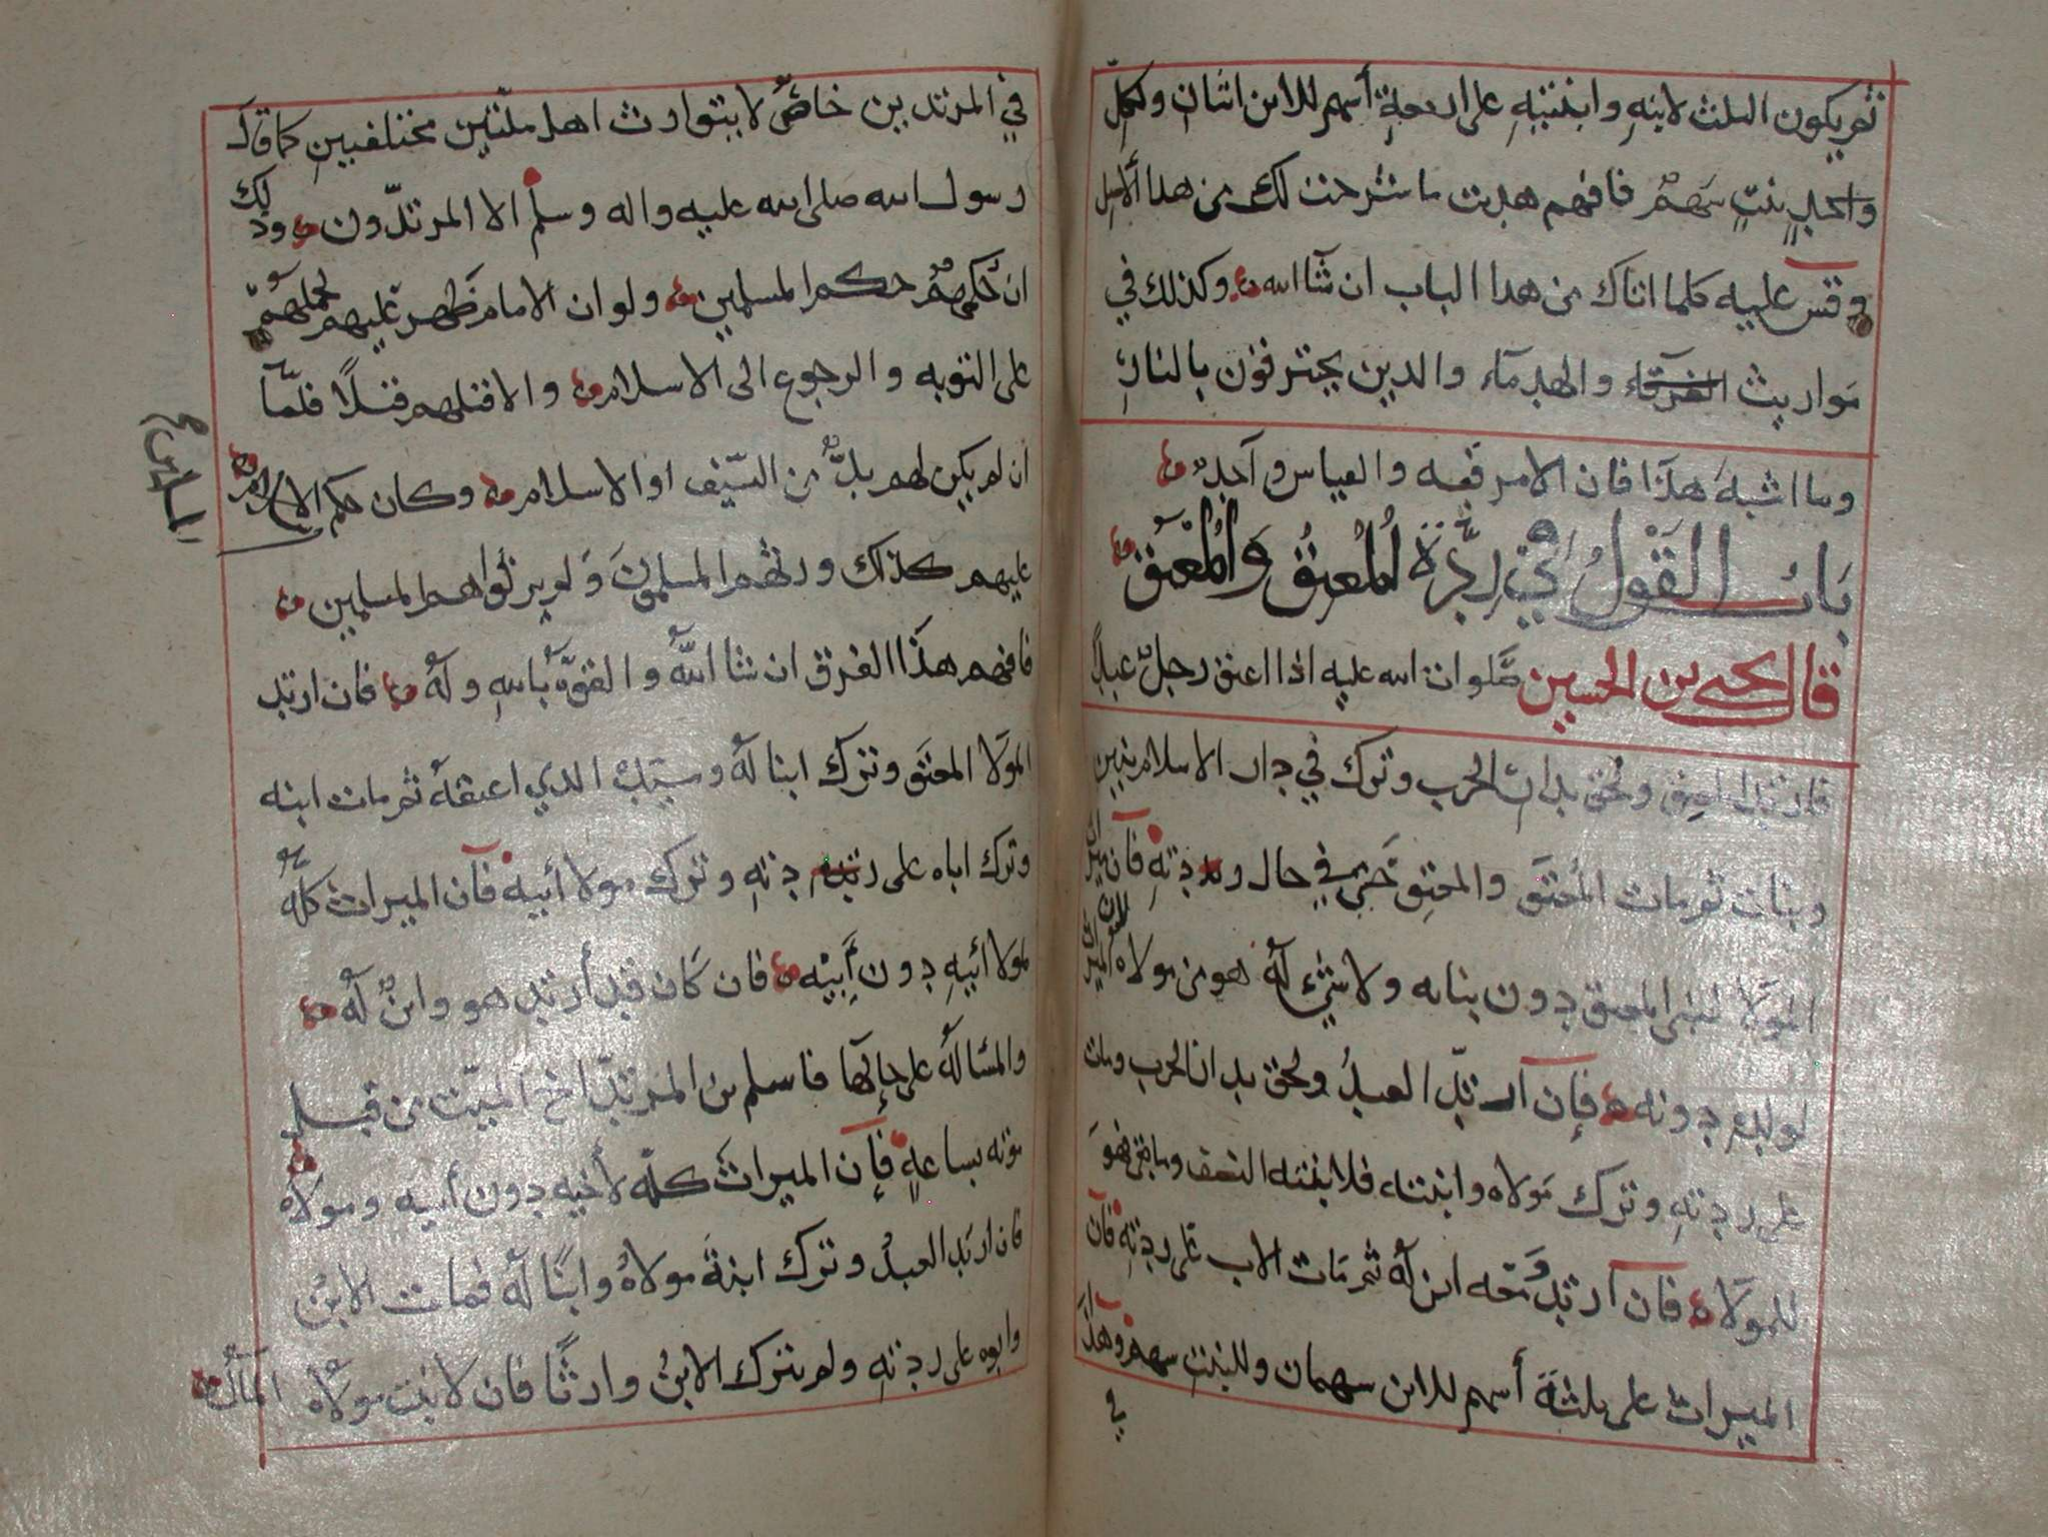 ثم يكون الثلث لابنه وابنتيه على اربعة أسهم للابن اثنان ولكل
واحدة بنت سهم فافهم هديت ما شرحت لك من هدا الاصل
وقس عليه كلما اتاك من هدا الباب ان شآ الله وكذلك في
مواريث الغرقاء والهدماء والدين يحترقون بالنار
وما اشبه هذا فان الامر فيه والقياس واحد
باب القول في ردة المعتق والمعتق
قال يحيى بن الحسين صلوات الله عليه اذا اعتق رجل عبدا
فارتد المعتق ولحق بدار الحرب وترك في دار الاسلام بنين
وبنات ثم مات المعتق والمعتق حي في حال ردته فان ميراث
المولا لبني المعتق دون بناته ولا شي له هو من مولاه لان الميراث
لولده دونه فإن ارتد العبد ولحق بدار الحرب ومات
على ردته وترك مولاه وابنته فلابنته النصف وما بقي فهو
للمولاه فان ارتد ومعه ابن له ثم مات الاب على ردته فان
الميراث على ثلثة أسهم للابن سهمان وللبنت سهم وهذا
في
في المرتدين خاص لا يتوارث اهل ملتين مختلفين كما قال
رسول الله صلى الله عليه واله وسلم الا المرتدون وذلك
ان حكمهم حكم المسلمين ولو ان الامام ظهر عليهم لحملهم
على التوبه والرجوع الى الاسلام والا قتلهم قتلا فلما
ان لم يكن لهم بد من السيف او الاسلام وكان حكم الاسلام
المسلمين
عليهم كذلك ورثهم المسلمون ولم يرثوا هم المسلمين
فافهم هذا الفرق ان شا الله والقوة بالله وله فان ارتد
المولا المعتق وترك ابنا له وسيده الدي اعتقه ثم مات ابنه
وترك اباه على ردته وترك مولا أبيه فان الميراث كله
لمولا أبيه دون أبيه فان كان قد أرتد هو وابن له
والمسالة على حالها فاسلم من المرتد اخ الميت من قبل
موته بساعة فإن الميراث كله لأخيه دون أبيه ومولاه
فان ارتد العبد وترك ابنة مولاه وابنا له فمات الابن
وابوه على ردته ولم يترك الابن وارثا فان لابنت مولاه المال